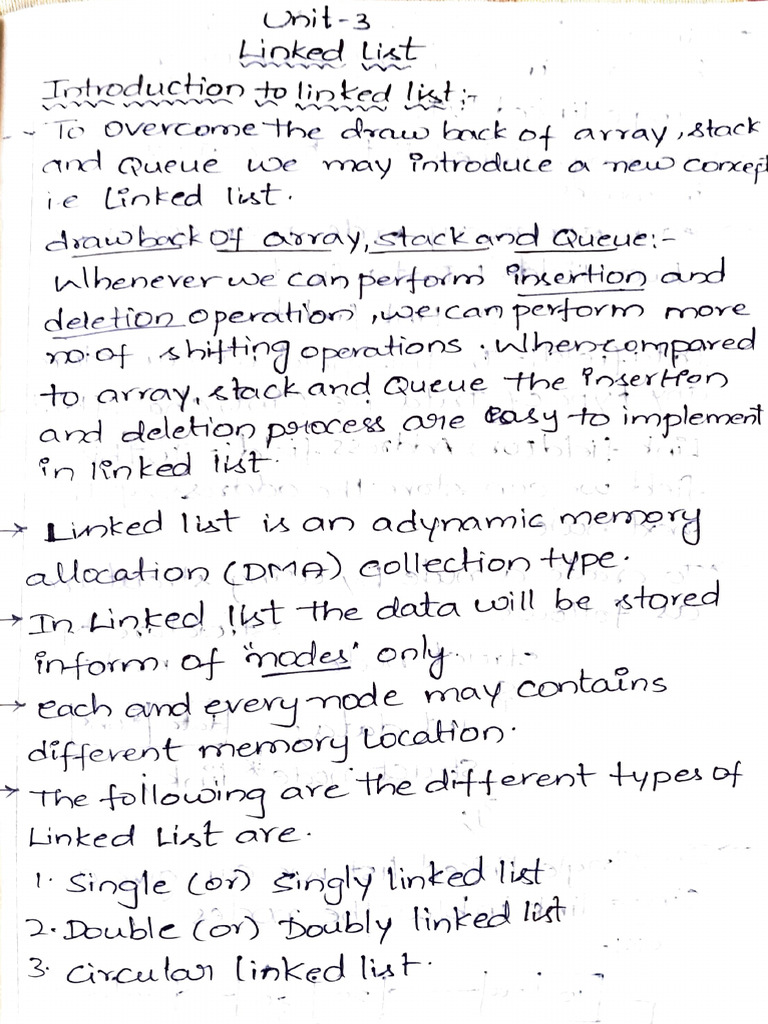 Unit-3
Linked List
Introduction to linked list:-
- To overcome the draw back of array, stack
and Queue we may introduce a new concept
i.e Linked list.
drawback of array, stack and Queue:-
Whenever we can perform insertion and
deletion operation, we can perform more
no. of shifting operations. When compared
to array, stack and Queue the insertion
and deletion process are easy to implement
in linked list.
→ Linked list is an adynamic memory
allocation (DMA) collection type.
→ In Linked list the data will be stored
inform of "nodes" only.
→ each and every node may contains
different memory location.
→ The following are the different types of
Linked List are.
1. Single (or) singly linked list
2. Double (or) Doubly linked list
3. circular linked list.